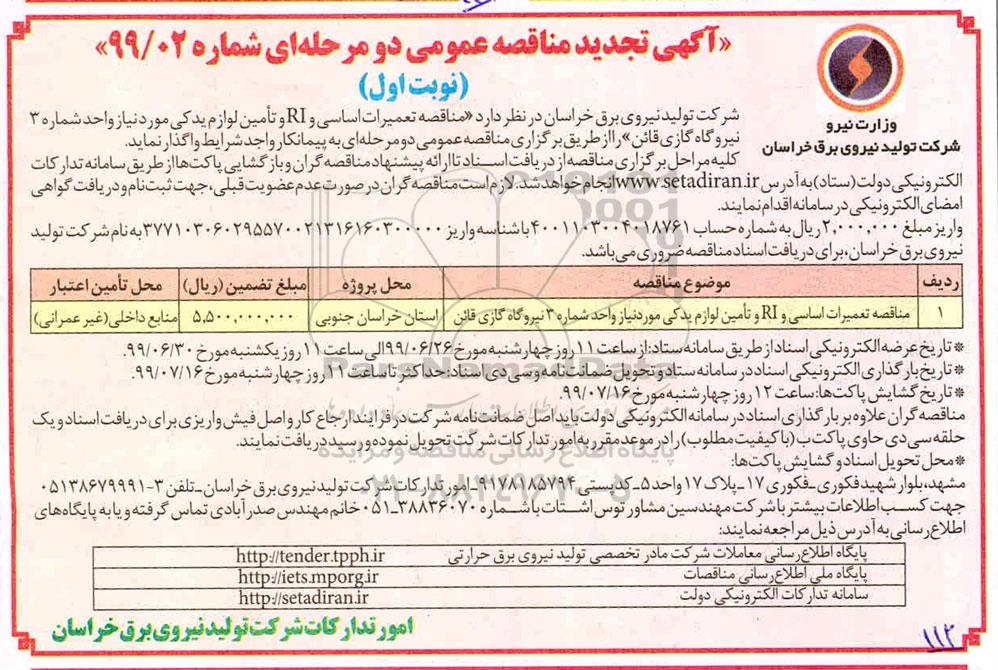 «آگهی تجدید مناقصه عمومی دو مرحله‌ای شماره ۹۹/۰۲»
(نوبت اول)
وزارت نیرو
شرکت تولید نیروی برق خراسان
شرکت تولید نیروی برق خراسان در نظر دارد «مناقصه تعمیرات اساسی و RI و تأمین لوازم یدکی مورد نیاز واحد شماره ۳
نیروگاه گازی قائن»، را از طریق برگزاری مناقصه عمومی دو مرحله‌ای به پیمانکار واجد شرایط واگذار نماید.
کلیه مراحل برگزاری مناقصه از دریافت اسناد تا ارائه پیشنهاد مناقصه گران و بازگشایی پاکت‌ها از طریق سامانه تدارکات
الکترونیکی دولت (ستاد) به آدرس www.setadiran.ir انجام خواهد شد. لازم است مناقصه گران در صورت عدم عضویت قبلی، جهت ثبت نام و دریافت گواهی
امضای الکترونیکی در سامانه اقدام نمایند.
واریز مبلغ ۲,۰۰۰,۰۰۰ ریال به شماره حساب ۴۰۰۱۱۰۳۰۰۴۰۱۸۷۶۱ با شناسه واریز ۳۷۷۱۰۳۰۶۰۲۹۵۵۷۰۰۲۱۳۱۶۱۶۰۳۰۰۰۰۰ به نام شرکت تولید
نیروی برق خراسان، برای دریافت اسناد مناقصه ضروری می‌باشد.
ردیف موضوع مناقصه محل پروژه مبلغ تضمین (ریال) محل تأمین اعتبار
۱ مناقصه تعمیرات اساسی و RI و تأمین لوازم یدکی مورد نیاز واحد شماره ۳ نیروگاه گازی قائن استان خراسان جنوبی ۵,۵۰۰,۰۰۰,۰۰۰ منابع داخلی (غیر عمرانی)
* تاریخ عرضه الکترونیکی اسناد از طریق سامانه ستاد: از ساعت ۱۱ روز چهارشنبه مورخ ۹۹/۰۶/۲۶ الی ساعت ۱۱ روز یکشنبه مورخ ۹۹/۰۶/۳۰.
* تاریخ بارگذاری الکترونیکی اسناد در سامانه ستاد و تحویل ضمانت نامه و سی دی اسناد: حداکثر تا ساعت ۱۱ روز چهارشنبه مورخ ۹۹/۰۷/۱۶.
* تاریخ گشایش پاکت‌ها: ساعت ۱۲ روز چهارشنبه مورخ ۹۹/۰۷/۱۶.
مناقصه گران علاوه بر بارگذاری اسناد در سامانه الکترونیکی دولت باید اصل ضمانت نامه شرکت در فرایند ارجاع کار و اصل فیش واریزی برای دریافت اسناد و یک
حلقه سی دی حاوی پاکت ب (با کیفیت مطلوب) را در موعد مقرر به امور تدارکات شرکت تحویل نموده و رسید دریافت نمایند.
* محل تحویل اسناد و گشایش پاکت‌ها:
مشهد، بلوار شهید فکوری ـ فکوری ۱۷ ـ پلاک ۱۷ واحد ۵ ـ کدپستی ۹۱۷۸۱۸۵۷۹۴ ـ امور تدارکات شرکت تولید نیروی برق خراسان ـ تلفن ۳-۰۵۱۳۸۶۷۹۹۹۱
جهت کسب اطلاعات بیشتر با شرکت مهندسین مشاور توس اشتات با شماره ۳۸۸۳۶۰۷۰-۰۵۱ خانم مهندس صدرآبادی تماس گرفته و یا به پایگاه‌های
اطلاع رسانی به آدرس ذیل مراجعه نمایند:
پایگاه اطلاع رسانی معاملات شرکت مادر تخصصی تولید نیروی برق حرارتی http://tender.tpph.ir
پایگاه ملی اطلاع رسانی مناقصات http://iets.mporg.ir
سامانه تدارکات الکترونیکی دولت http://setadiran.ir
امور تدارکات شرکت تولید نیروی برق خراسان
۱۱۲
ParsNamadData
پایگاه اطلاع رسانی مناقصه و مزایده
۰۲۱-۸۸۳۴۹۶۷۰-۵